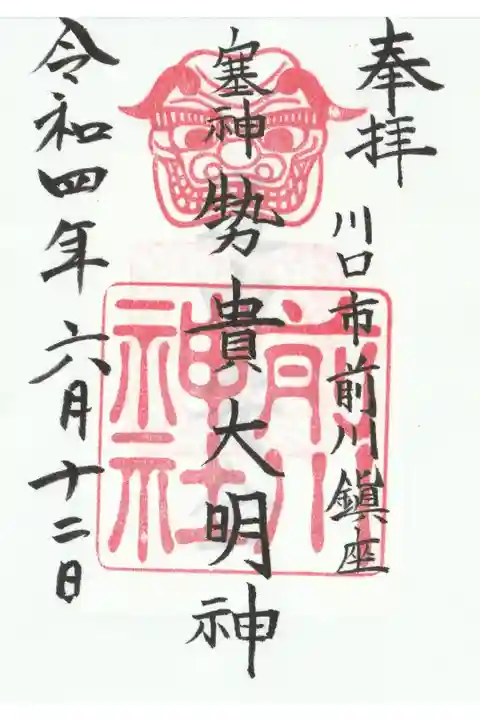 奉拝
川口市前川鎮座
塞神 勢貴大明神
前川神社
令和四年六月十二日